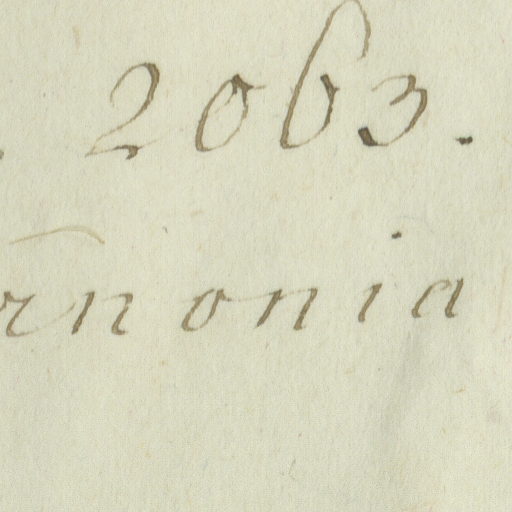 . 2063.
rnonia